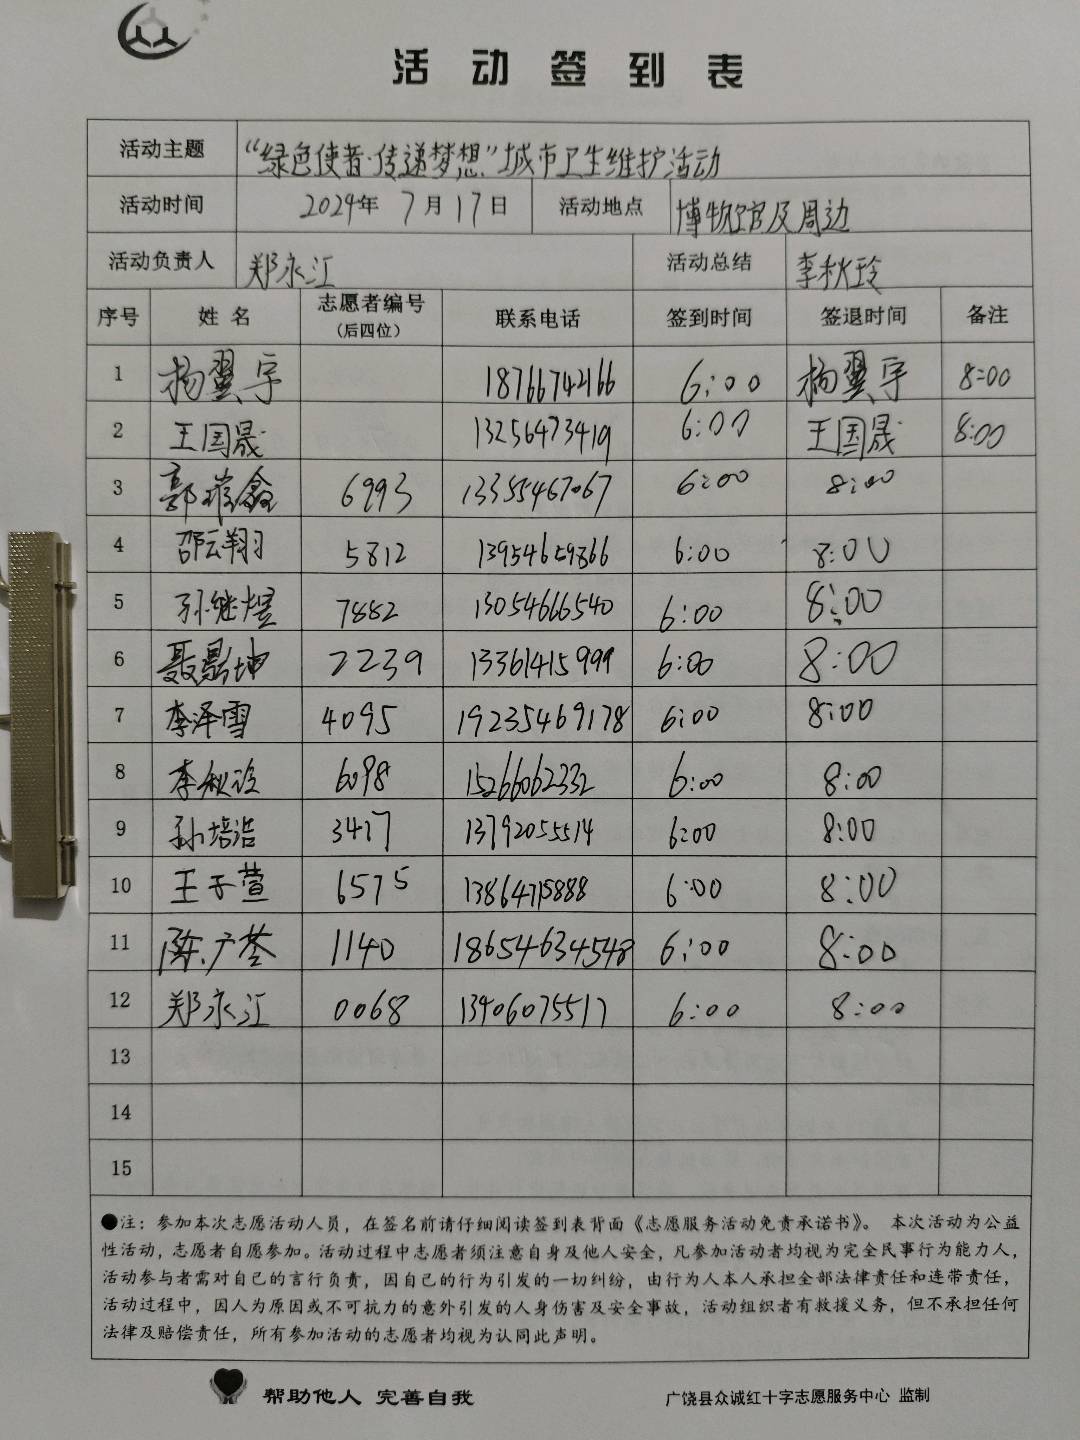 活动签到表
活动主题 “绿色使者·传递梦想”城市卫生维护活动
活动时间 2024年 7月17日 活动地点 博物馆及周边
活动负责人 郑永江 活动总结 李秋玲
序号 姓名 志愿者编号（后四位） 联系电话 签到时间 签退时间 备注
1 杨翼宇 18766742166 6:00 杨翼宇 8:00
2 王国晟 13256473419 6:00 王国晟 8:00
3 郭璀鑫 6993 13355467067 6:00 8:00
4 邵云翔 5812 13954629866 6:00 8:00
5 孙继煜 7882 13054666540 6:00 8:00
6 聂勗坤 2239 13361415999 6:00 8:00
7 李泽雪 4095 19235469178 6:00 8:00
8 李秋玲 6098 15266062332 6:00 8:00
9 孙培浩 3417 13792055514 6:00 8:00
10 王子萱 6575 13864715888 6:00 8:00
11 陈广荃 1140 18654634548 6:00 8:00
12 郑永江 0068 13406075517 6:00 8:00
13
14
15
●注：参加本次志愿活动人员，在签名前请仔细阅读签到表背面《志愿服务活动免责承诺书》。 本次活动为公益
性活动，志愿者自愿参加。活动过程中志愿者须注意自身及他人安全，凡参加活动者均视为完全民事行为能力人，
活动参与者需对自己的言行负责，因自己的行为引发的一切纠纷，由行为人本人承担全部法律责任和连带责任，
活动过程中，因人为原因或不可抗力的意外引发的人身伤害及安全事故，活动组织者有救援义务，但不承担任何
法律及赔偿责任，所有参加活动的志愿者均视为认同此声明。
帮助他人 完善自我 广饶县众诚红十字志愿服务中心 监制